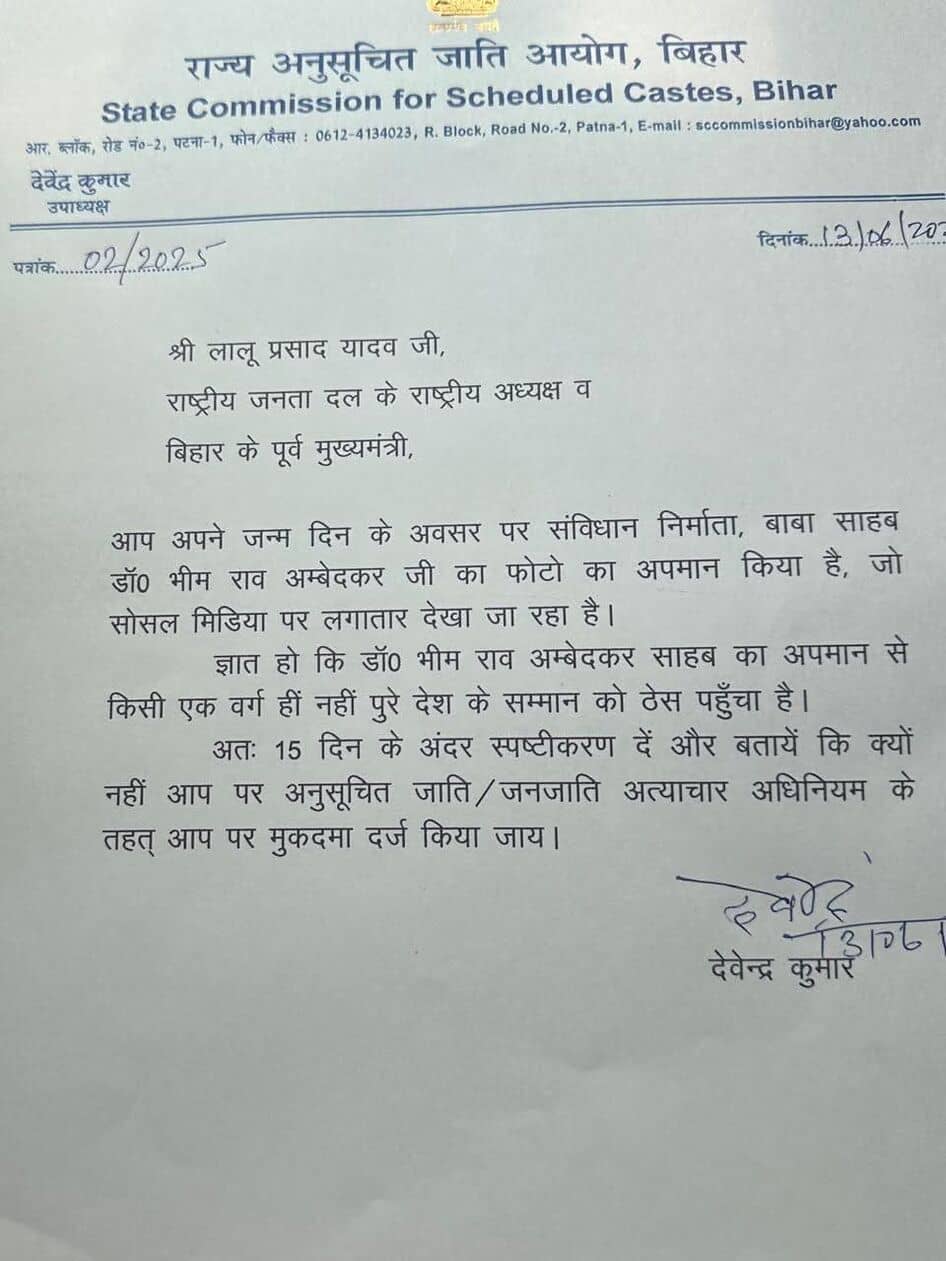 सत्यमेव जयते
राज्य अनुसूचित जाति आयोग, बिहार
State Commission for Scheduled Castes, Bihar
आर. ब्लॉक, रोड नं०-2, पटना-1, फोन/फैक्स : 0612-4134023, R. Block, Road No.-2, Patna-1, E-mail : sccommissionbihar@yahoo.com
देवेंद्र कुमार
उपाध्यक्ष
पत्रांक......02/2025
दिनांक...13/06/202
श्री लालू प्रसाद यादव जी,
राष्ट्रीय जनता दल के राष्ट्रीय अध्यक्ष व
बिहार के पूर्व मुख्यमंत्री,
आप अपने जन्म दिन के अवसर पर संविधान निर्माता, बाबा साहब
डॉ0 भीम राव अम्बेदकर जी का फोटो का अपमान किया है, जो
सोसल मिडिया पर लगातार देखा जा रहा है।
ज्ञात हो कि डॉ0 भीम राव अम्बेदकर साहब का अपमान से
किसी एक वर्ग हीं नहीं पुरे देश के सम्मान को ठेस पहुँचा है।
अतः 15 दिन के अंदर स्पष्टीकरण दें और बतायें कि क्यों
नहीं आप पर अनुसूचित जाति/जनजाति अत्याचार अधिनियम के
तहत् आप पर मुकदमा दर्ज किया जाय।
13/06/
देवेन्द्र कुमार